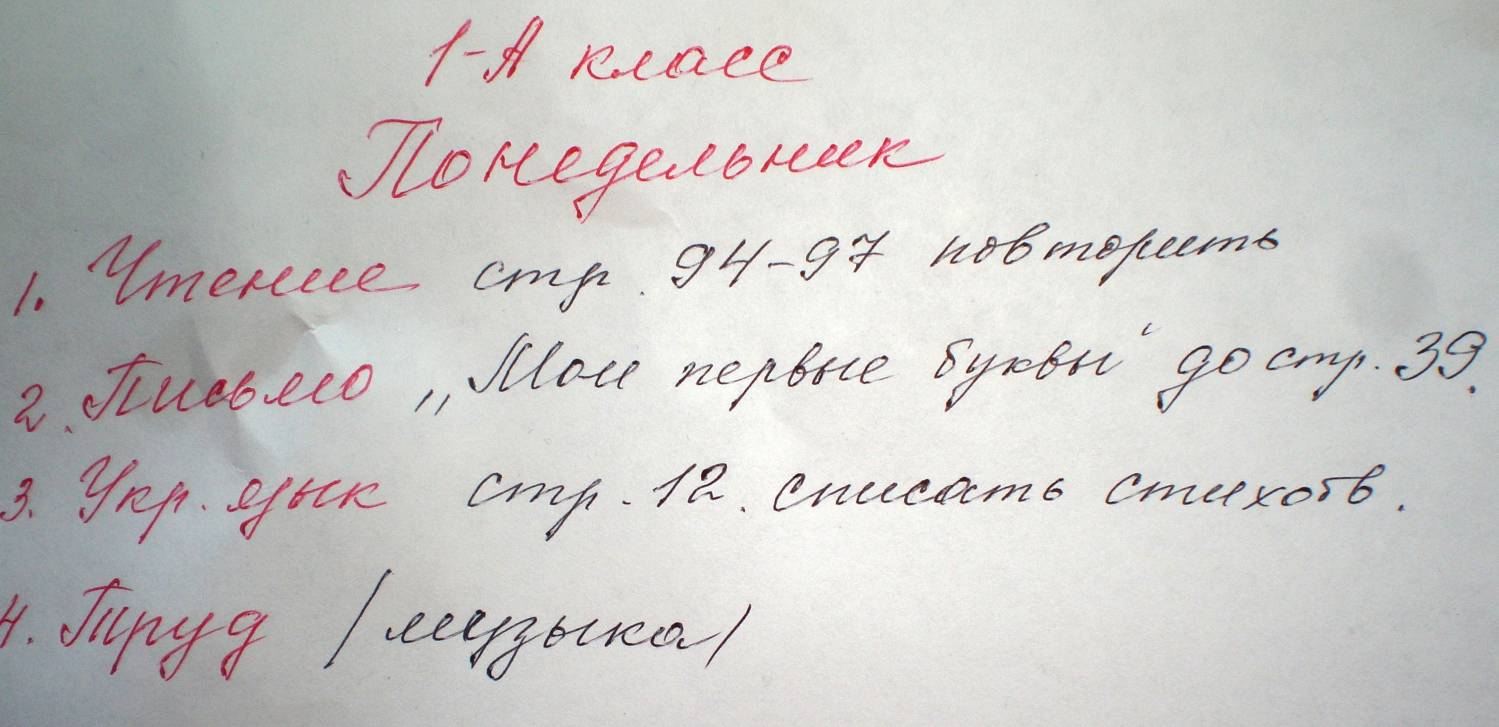 1-А класс
Понедельник
1. Чтение стр. 94-97 повторить
2. Письмо „Мои первые буквы" до стр. 39.
3. Укр. язык стр. 12. списать стихотв.
4. Труд /музыка/